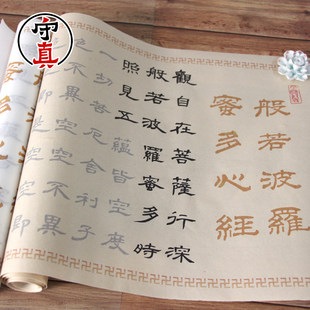 守真
般若波羅
蜜多心經
觀自在菩薩行深
般若波羅蜜多時
照見五蘊皆空度
一切苦厄舍利子
色不異空空不異
色即是空空即